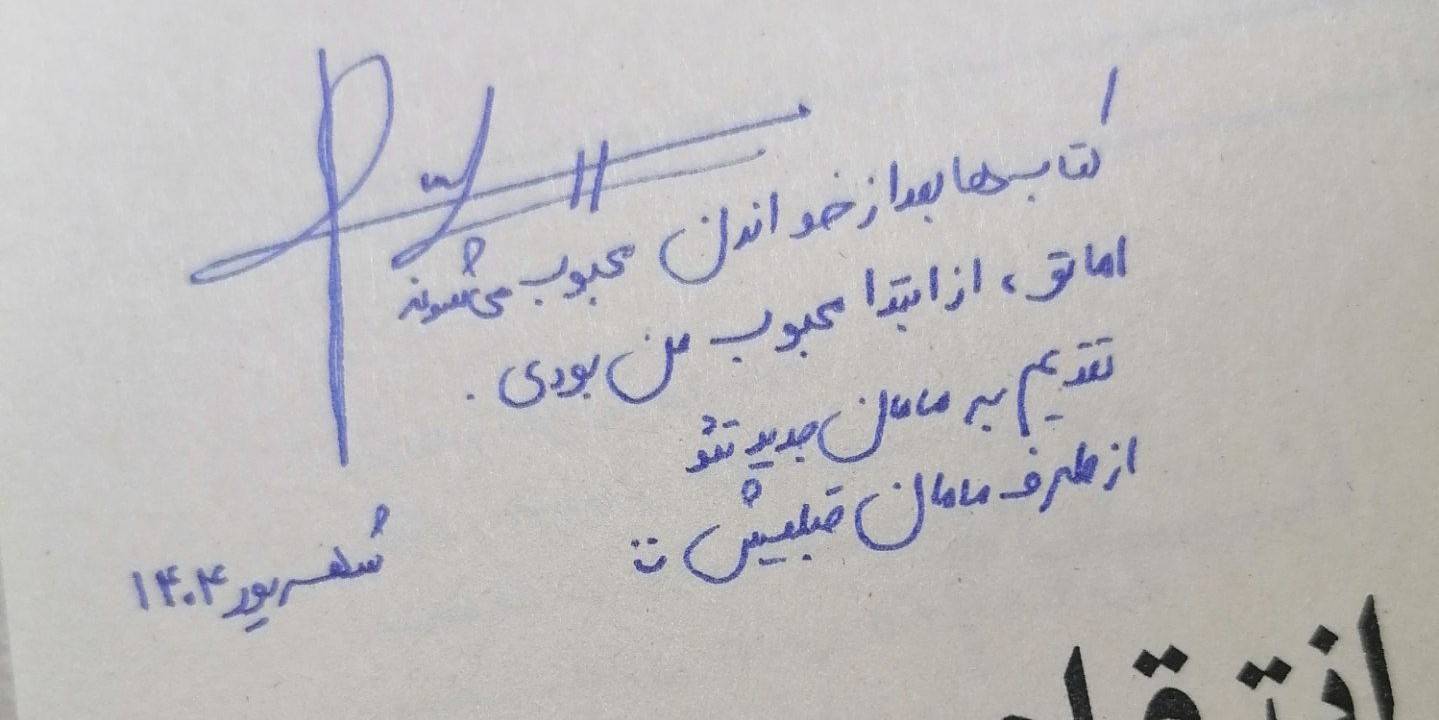 کتاب‌ها بعد از خواندن محبوب می‌شوند
اما تو، از ابتدا محبوب من بودی.
تقدیم به مامان جدید تئو
از طرف مامان قبلیش :)
شهریور ۱۴۰۴